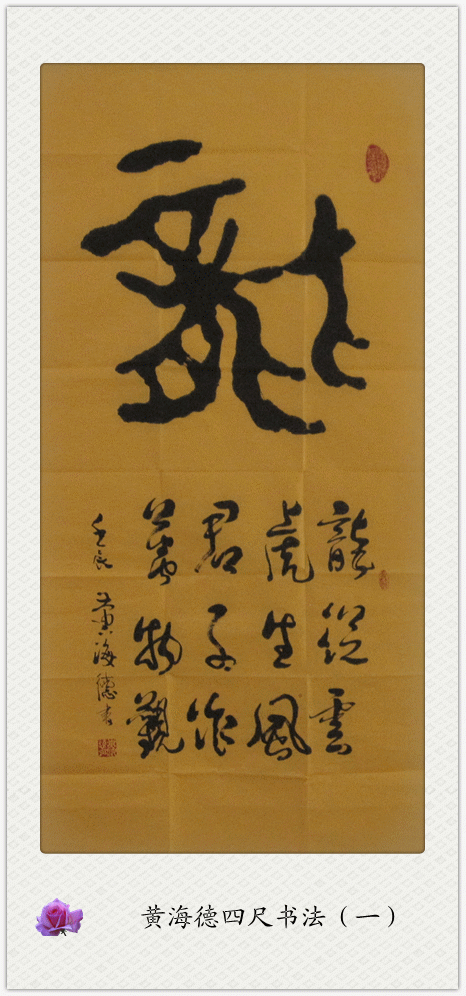 龍從雲
虎生風
君子作
萬物觀
壬辰 黄海德书
黄海德四尺书法（一）